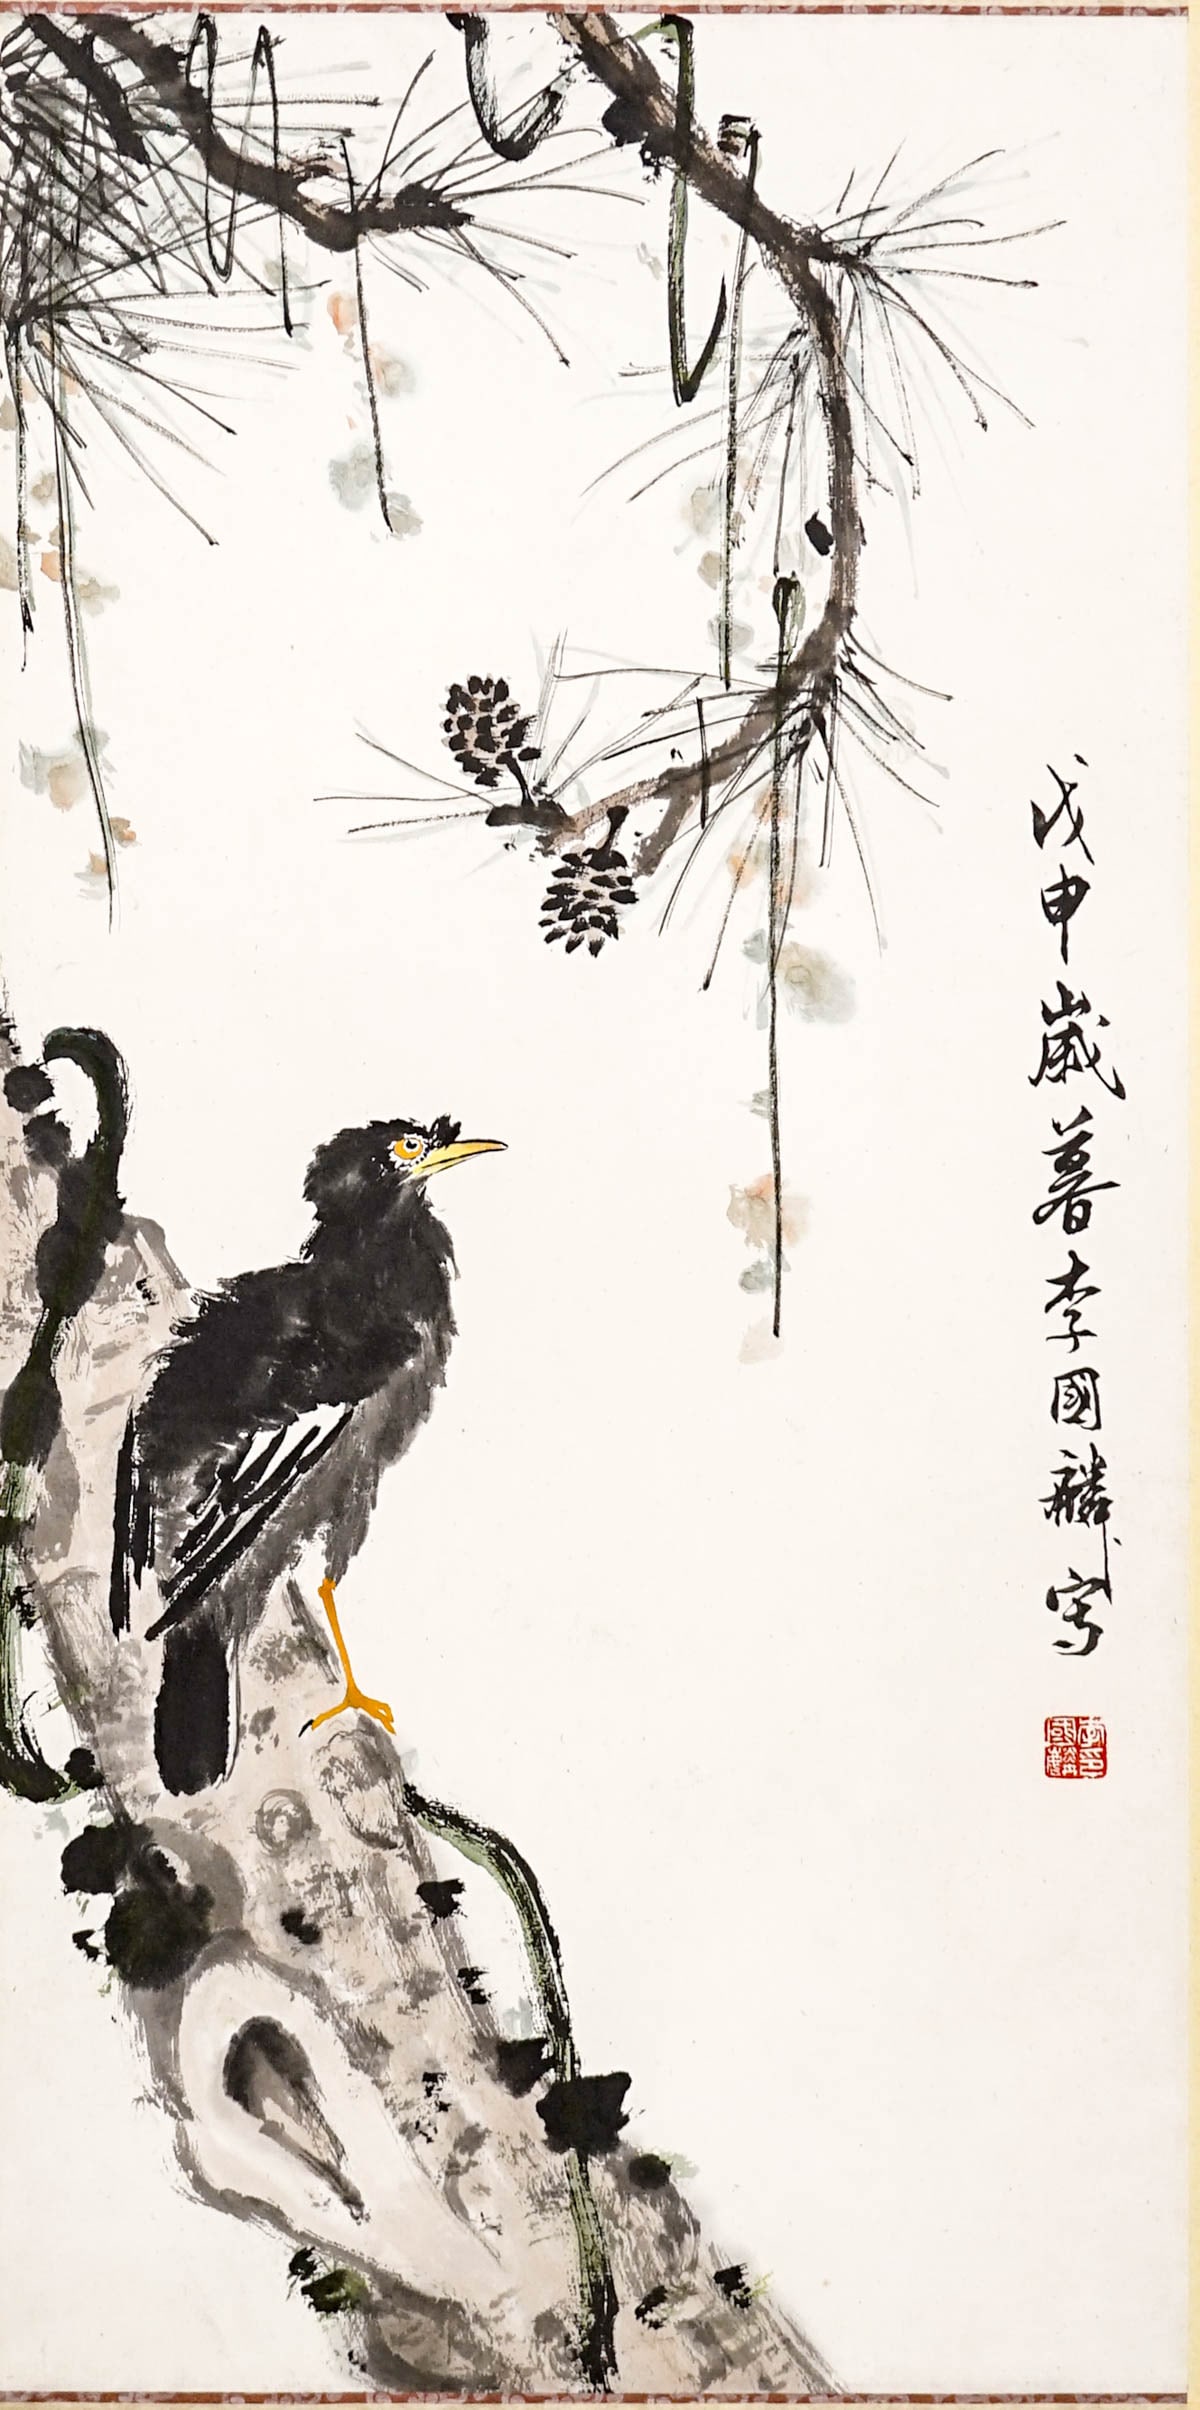 戊申歲暮李國麟寫
李國麟印